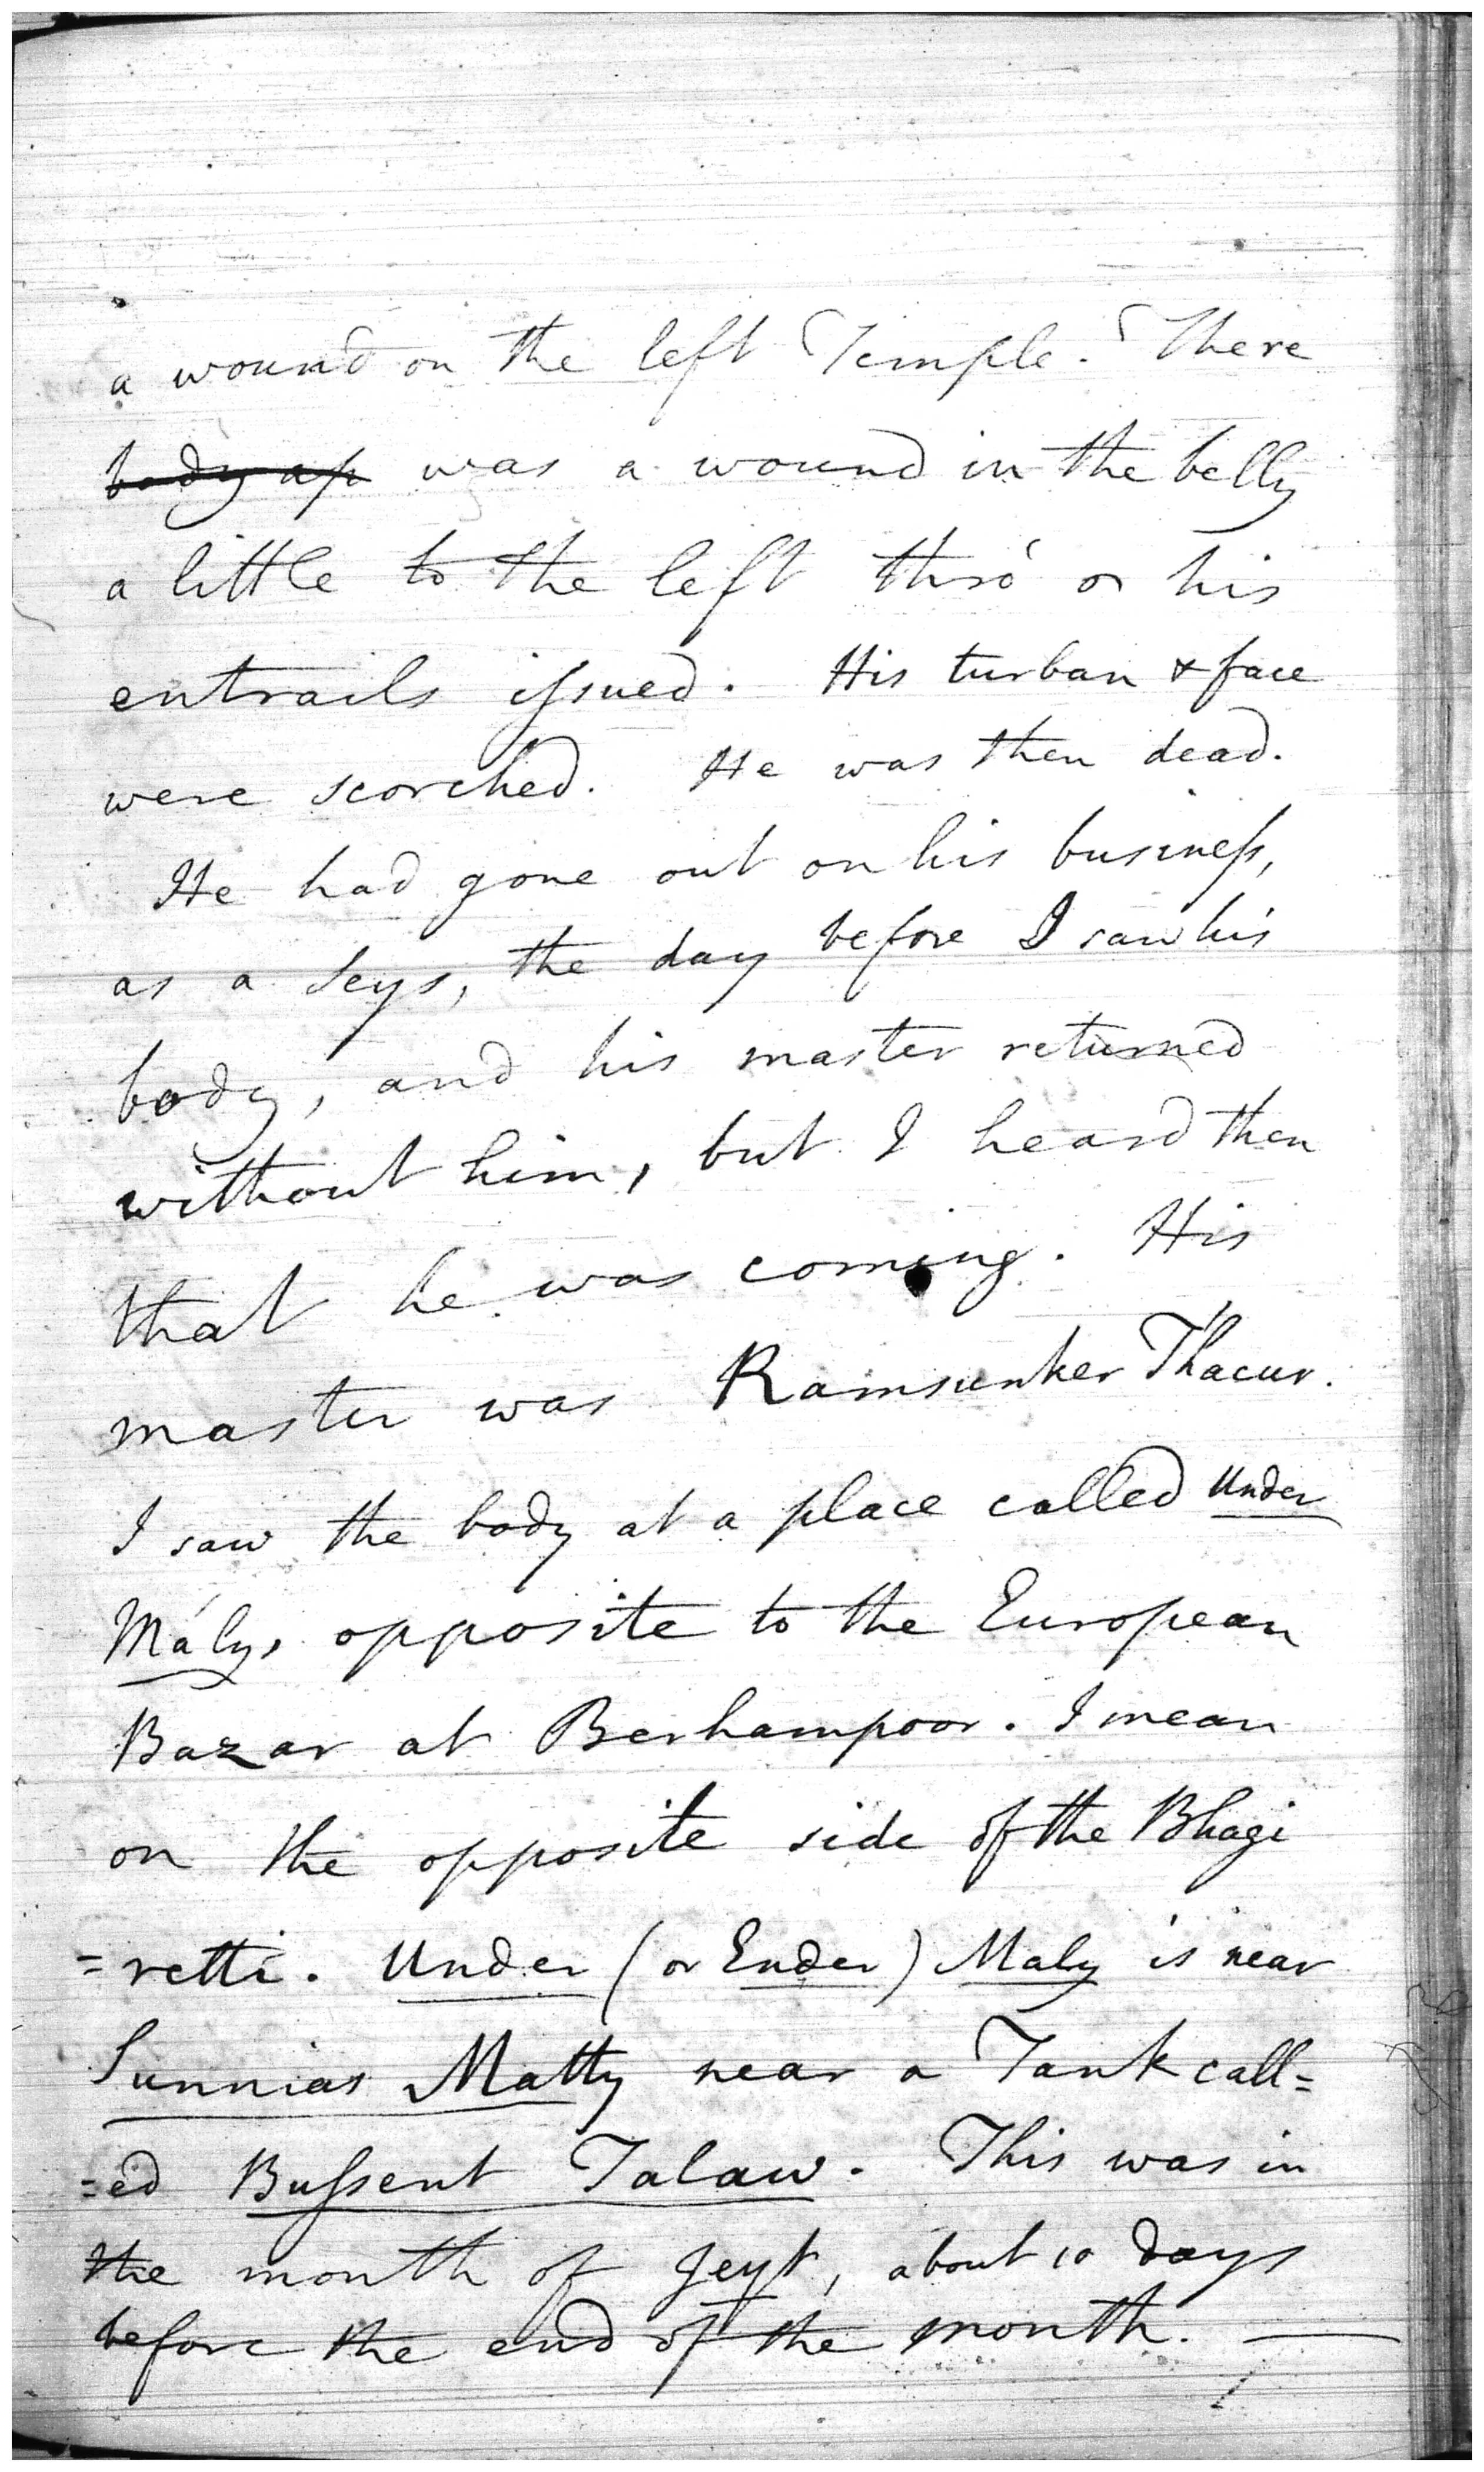 a wound on the left Temple. There
body ap was a wound in the belly
a little to the left thro' on his
entrails issued. His turban & face
were scorched. He was then dead.
He had gone out on his business,
as a Seys, the day before I saw his
body, and his master returned
without him, but I heard then
that he was coming. His
master was Ramsunker Thacur.
I saw the body at a place called Under
Mály, opposite to the European
Bazar at Berhampoor. I mean
on the opposite side of the Bhagi
=retti. Under (or Ender) Maly is near
Sunnias Matty near a Tank call=
=ed Bussent Talaw. This was in
the month of Jeyt, about 10 days
before the end of the month. —